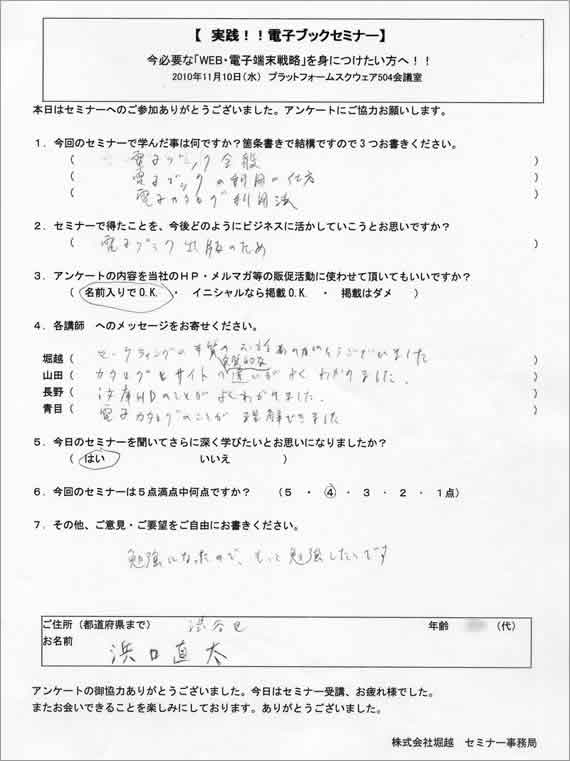 【 実践！！電子ブックセミナー】
今必要な「WEB・電子端末戦略」を身につけたい方へ！！
2010年11月10日(水) プラットフォームスクウェア504会議室
本日はセミナーへのご参加ありがとうございました。アンケートにご協力お願いします。
1．今回のセミナーで学んだ事は何ですか？箇条書きで結構ですので3つお書きください。
( 電子ブック全般 )
( 電子ブックの利用の仕方 )
( 電子カタログ利用法 )
2．セミナーで得たことを、今後どのようにビジネスに活かしていこうとお思いですか？
( 電子ブック出版のため )
3．アンケートの内容を当社のHP・メルマガ等の販促活動に使わせて頂いてもいいですか？
( 名前入りでO.K. ・ イニシャルなら掲載O.K. ・ 掲載はダメ )
4．各講師 へのメッセージをお寄せください。
堀越 ( マーケティングの本質のお話ありがとうございました )
本質的な
山田 ( カタログとサイトの違いがよくわかりました. )
長野 ( HPのことがよくわかりました. )
青目 ( 電子カタログのことが理解できました )
5．今日のセミナーを聞いてさらに深く学びたいとお思いになりましたか？
( はい いいえ )
6．今回のセミナーは5点満点中何点ですか？ （5 ・ ④ ・ 3 ・ 2 ・ 1点）
7．その他、ご意見・ご要望をご自由にお書きください。
勉強になったので、もっと勉強したいです
ご住所（都道府県まで） 渋谷区 年齢 （代）
お名前
浜口直太
アンケートの御協力ありがとうございました。今日はセミナー受講、お疲れ様でした。
またお会いできることを楽しみにしております。ありがとうございました。
株式会社堀越 セミナー事務局